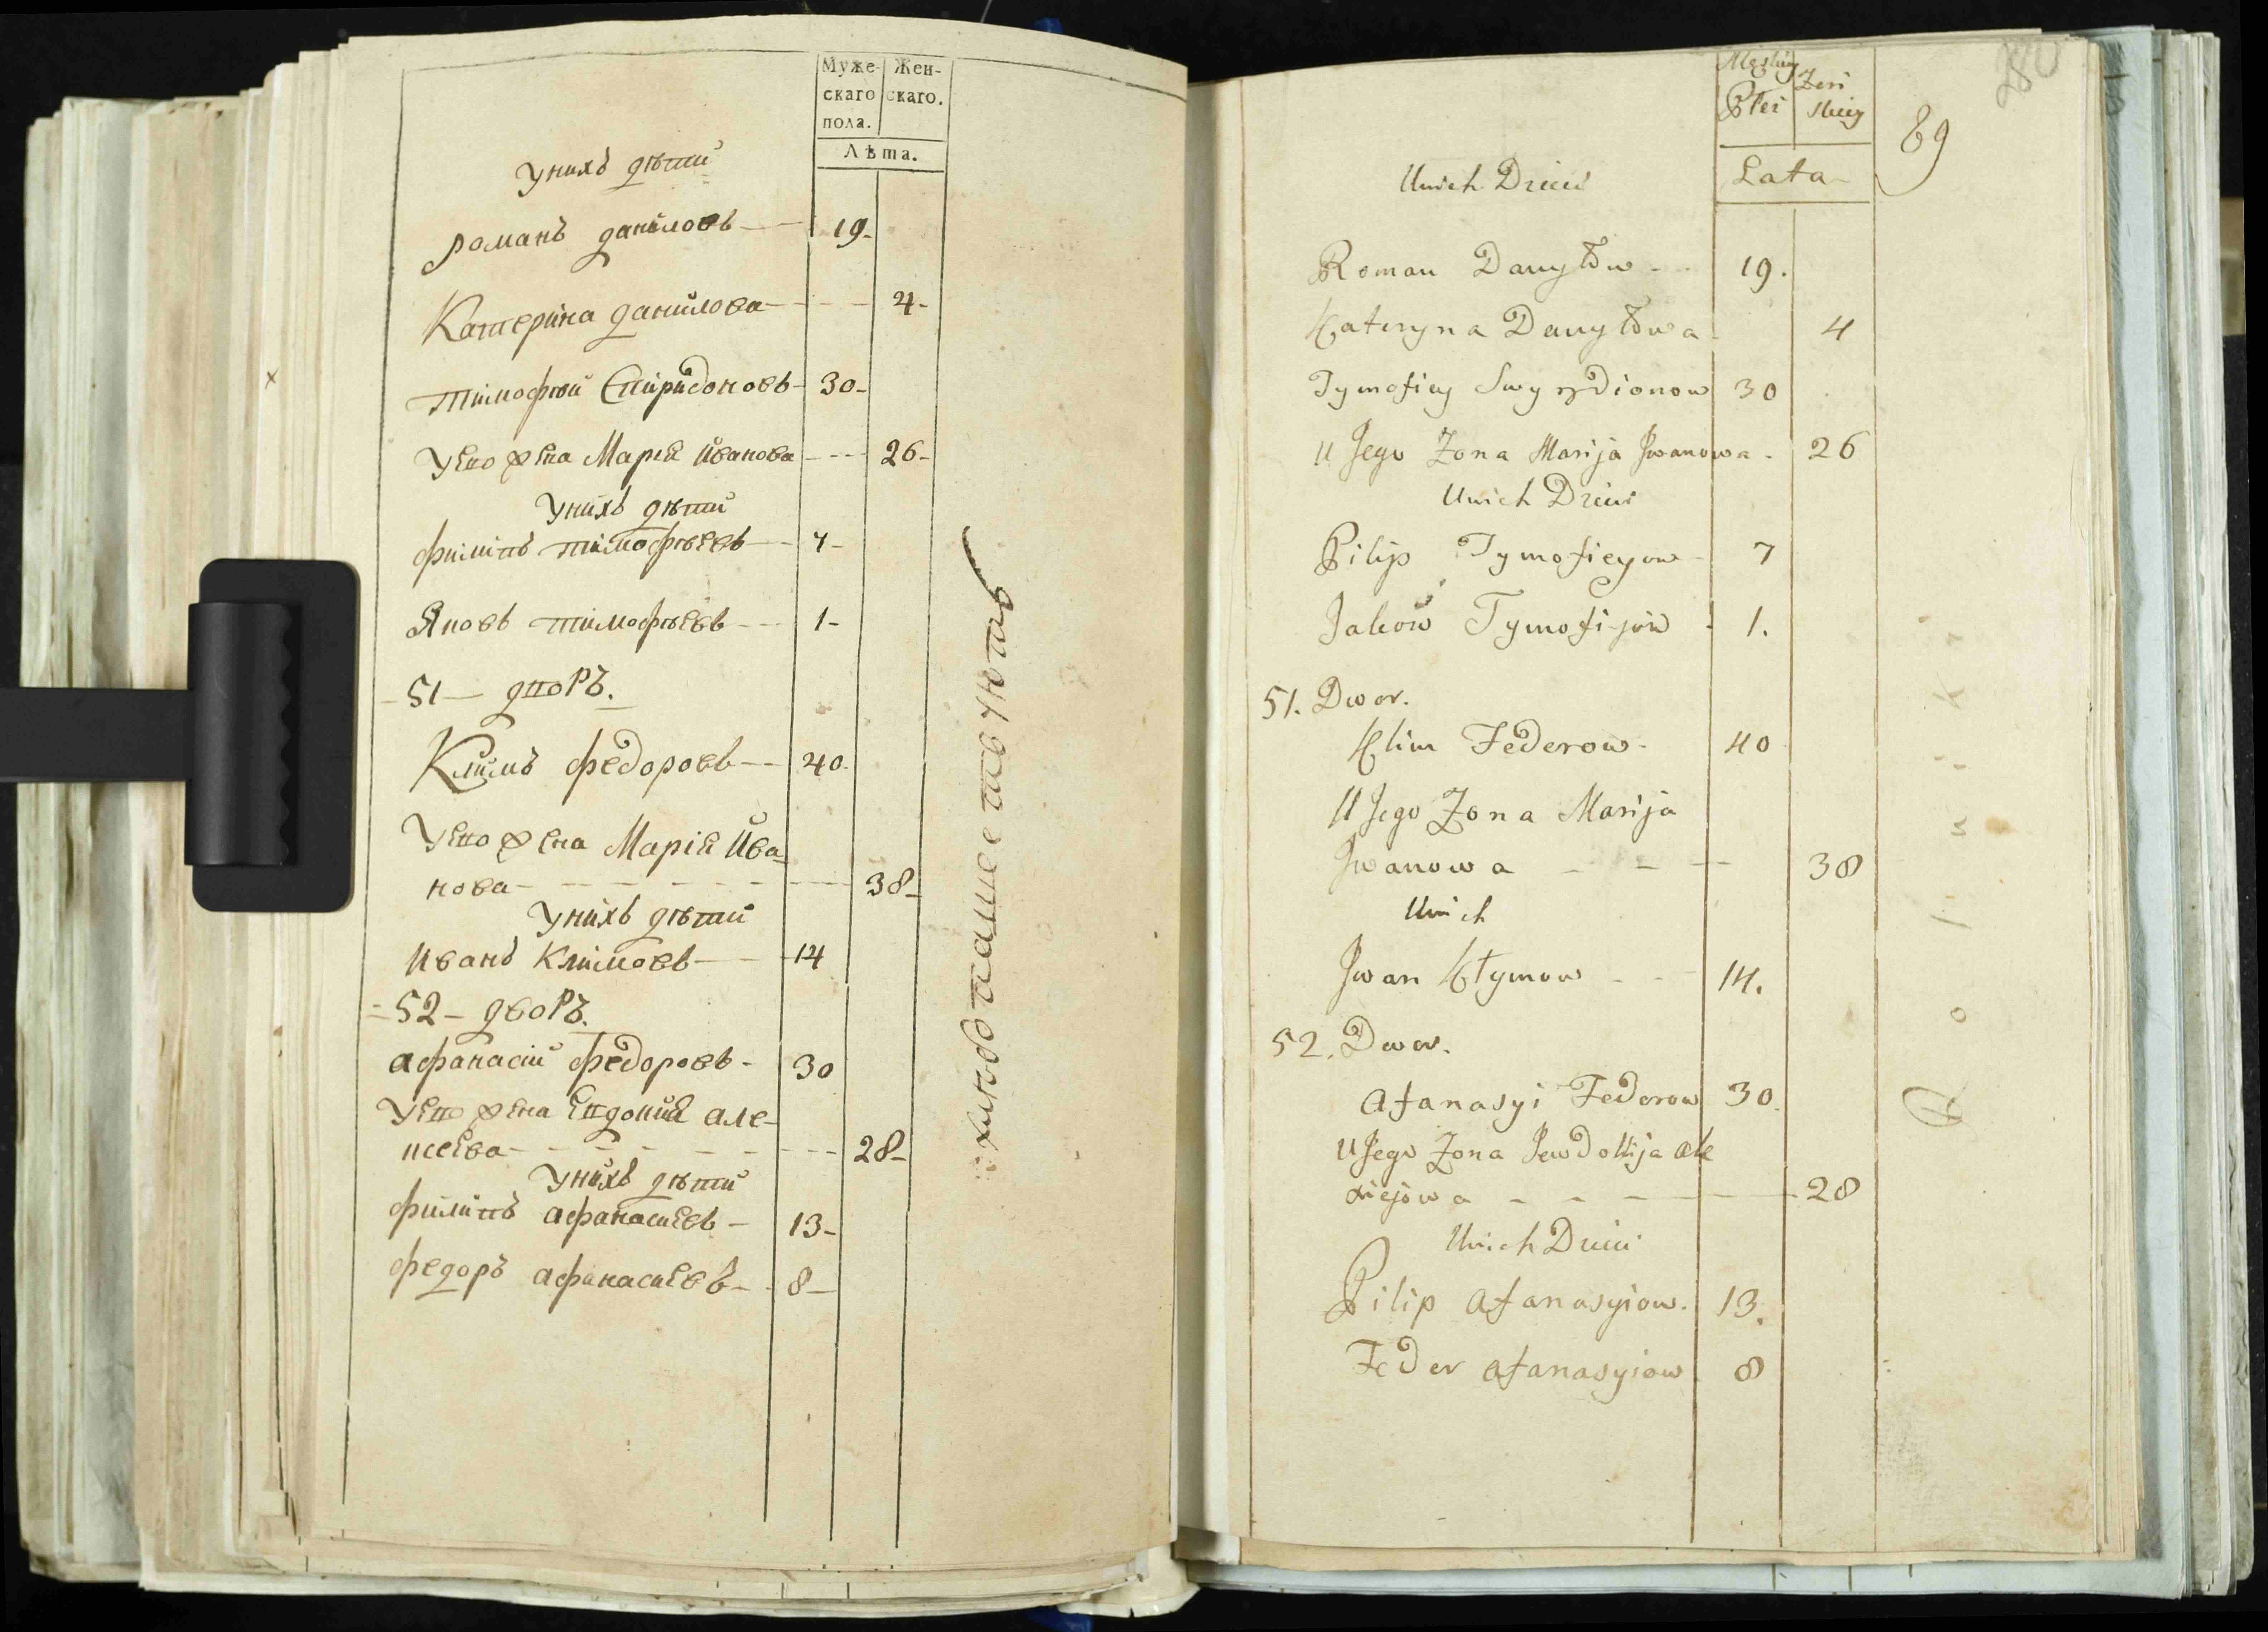 Муже-
скаго
пола.
Жен-
скаго.
Лѣта.
Унихъ дѣти
романъ даниловъ 19
Катерина данилова 4
тимофѣй Спиридоновъ 30
Уево жена Марія Иванова 26
Унихъ дѣти
филипъ тимофѣевъ 7
Яковъ тимофѣевъ 1
51 дворъ.
Климъ федоровъ 40
Уево жена Марія Ива-
нова 38
Унихъ дѣти
Иванъ Климовъ 14
52 дворъ.
афанасій федоровъ 30
Уево жена Евдокия але-
ксеева 28
Унихъ дѣти
филипъ афанасиевъ 13
федоръ афанасиевъ 8
280
89
Męskiey
Płci
Żeń
skiey
Lata
Unich Dzieci
Roman Danyłow 19.
Kateryna Danyłowa 4
Tymofiey Swyrydionow 30
U Jego Zona Marija Jwanowa 26
Unich Dzieci
Pilip Tymofieyow 7
Jakow Tymofijow 1.
51. Dwor.
Klim Federow 40
U Jego Zona Marija
Jwanowa 38
Unich
Jwan Kłymow 14.
52. Dwor.
Afanasyi Federow 30.
U Jego Zona Jewdokija Ale
xiejowa 28
Unich Dzieci
Pilip Afanasyiow. 13.
Feder Afanasyiow 8